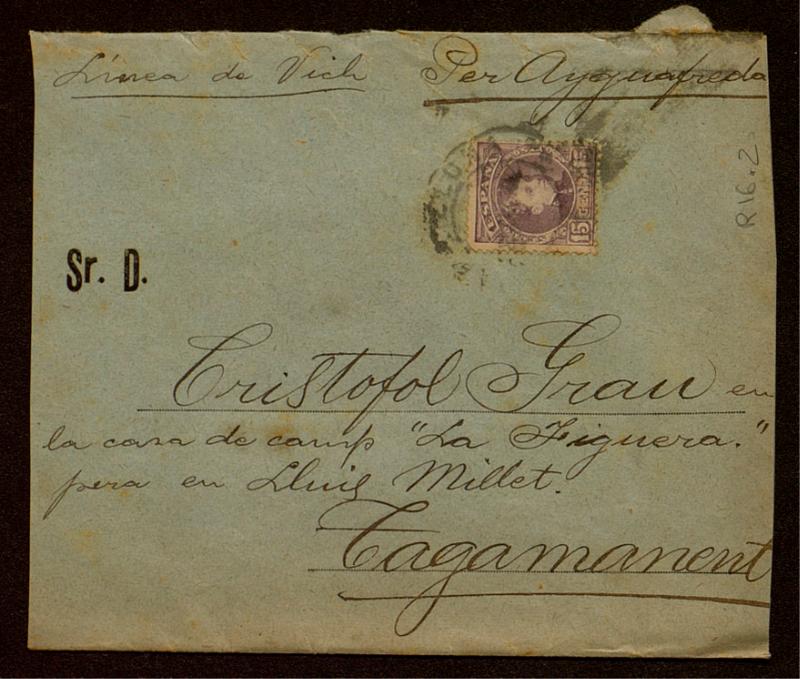 Línea de Vich Per Ayguafreda
ESPAÑA
15 CENT
R16.2
Sr. D.
Cristofol Grau en
la casa de camp "La Figuera."
pera en Lluis Millet.
Tagamanent